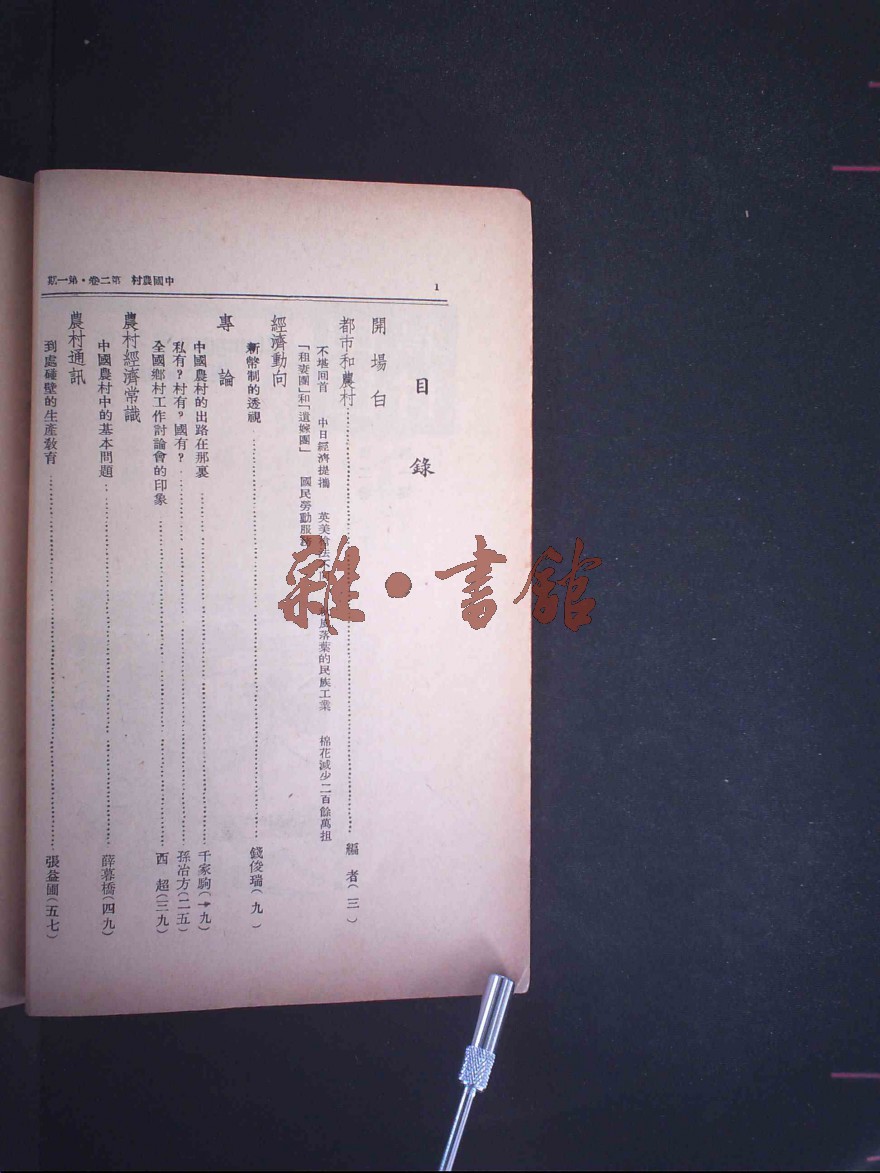 中國農村 第二卷・第一期
1
目錄
開場白
都市和農村 編者(三)
不堪回首 中日經濟提攜 英美 落葉的民族工業 棉花減少二百餘萬担
「租妻團」和「遣嫁團」 國民勞動服務
經濟動向
新幣制的透視 錢俊瑞(九)
專論
中國農村的出路在那裏 千家駒(一九)
私有?村有?國有? 孫冶方(二五)
全國鄉村工作討論會的印象 西超(三九)
農村經濟常識
中國農村中的基本問題 薛暮橋(四九)
農村通訊
到處碰壁的生產教育 張益圃(五七)
雜・書館